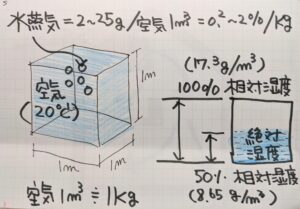 水蒸気=2~25g/空気1m³=0.2~2%/kg
空気
(20℃)
1m
1m
1m
空気1m³≒1kg
(17.3g/m³)
100% 相対湿度
絶対
湿度
50% 相対湿度
(8.65g/m³)